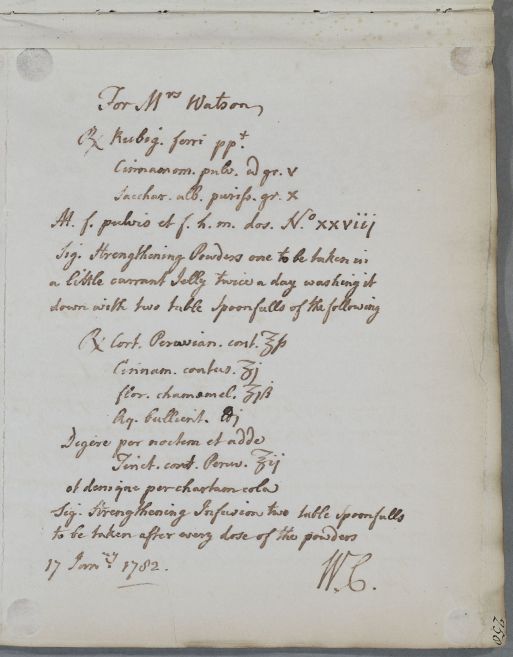 For Mrs Watson
℞ Rubig. ferri ppt.
Cinnamom. pulv. a͞a gr. v
Sacchar. alb. puriss. gr. x
M. f. pulvis et f. h. m. dos. No. xxviij
Sig. Strengthening Powders one to be taken in
a little currant Jelly twice a day washing it
down with two table Spoonfulls of the following
℞ Cort. Peruvian. cont. ℥ß
Cinnam. contus. ʒj
flor. chamomel. ʒjß
Aq. bullient. ℔j
Digere per noctem et adde
Tinct. cort. Peruv. ℥ij
et denique per chartam cola
Sig. Strengthening Infusion two table spoonfulls
to be taken after every dose of the powders
17 Janry. 1782.
W. C.
250